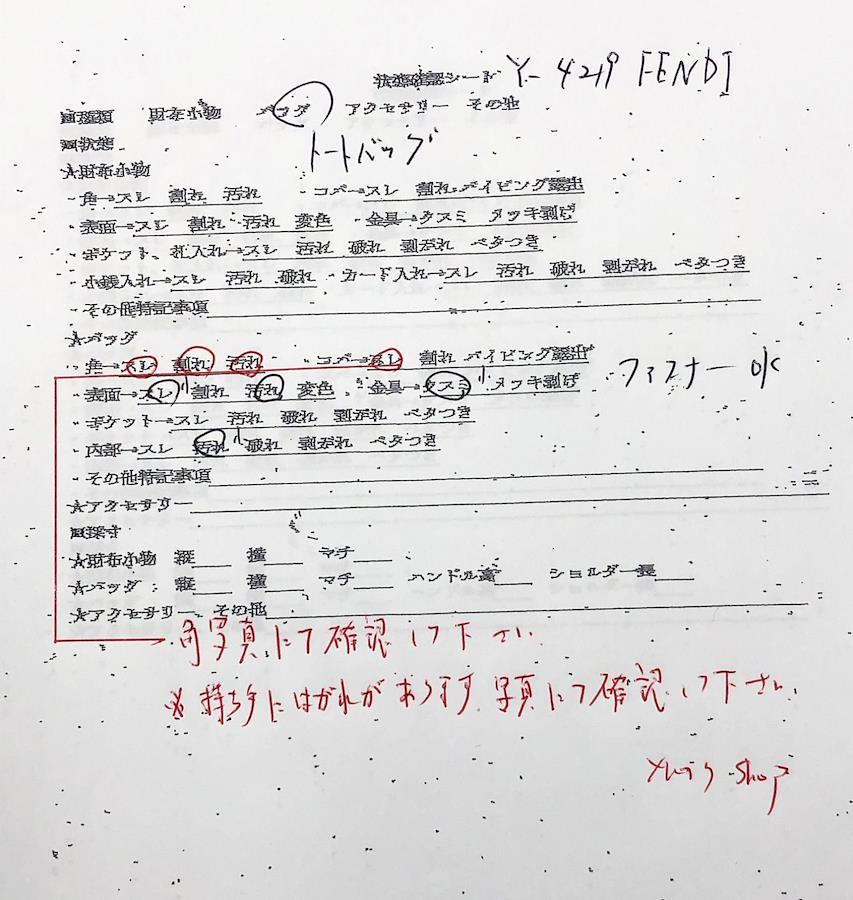 状態確認シート Y-4219 FENDI
■種類 財布小物 バッグ アクセサリー その他
■状態 トートバッグ
★財布小物
・角→スレ 割れ 汚れ ・コバ→スレ 割れ パイピング露出
・表面→スレ 割れ 汚れ 変色 ・金具→クスミ メッキ剥げ
・ポケット、札入れ→スレ 汚れ 破れ 剥がれ ベタつき
・小銭入れ→スレ 汚れ 破れ ・カード入れ→スレ 汚れ 破れ 剥がれ ベタつき
・その他特記事項
★バッグ
・角→スレ 割れ 汚れ ・コバ→スレ 割れ パイピング露出
・表面→スレ 小 割れ 汚れ 変色 ・金具→クスミ 小 メッキ剥げ ファスナー OK
・ポケット→スレ 汚れ 破れ 剥がれ ベタつき
・内部→スレ 汚れ 小 破れ 剥がれ ベタつき
・その他特記事項
★アクセサリー
■採寸
★財布小物 縦 横 マチ
★バッグ: 縦 横 マチ ハンドル高 ショルダー長
★アクセサリー、その他
角写真にて確認して下さい
※持ち手にはがれがあります 写真にて確認して下さい
shop